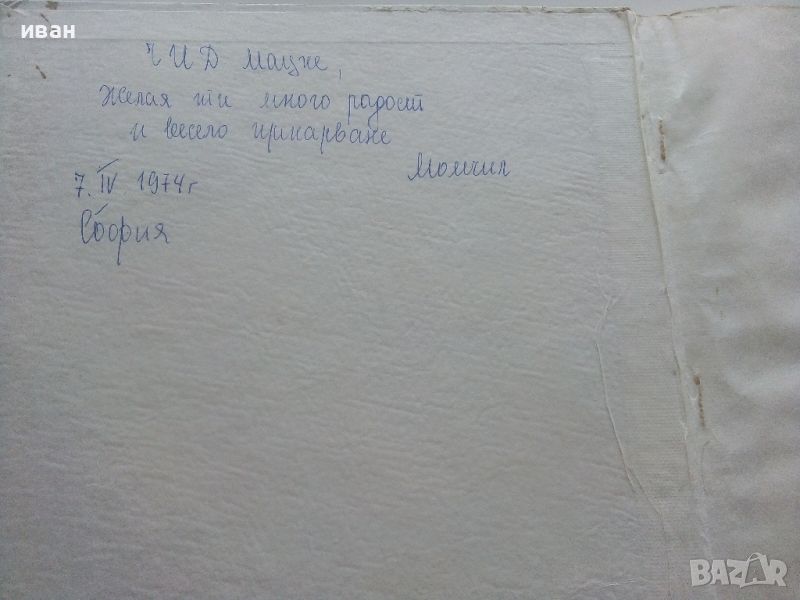 иван
ЧИД Мацке,
Желая ти много радост
и весело прикарване
Момчил
7. IV 1974 г
София
BAZAR